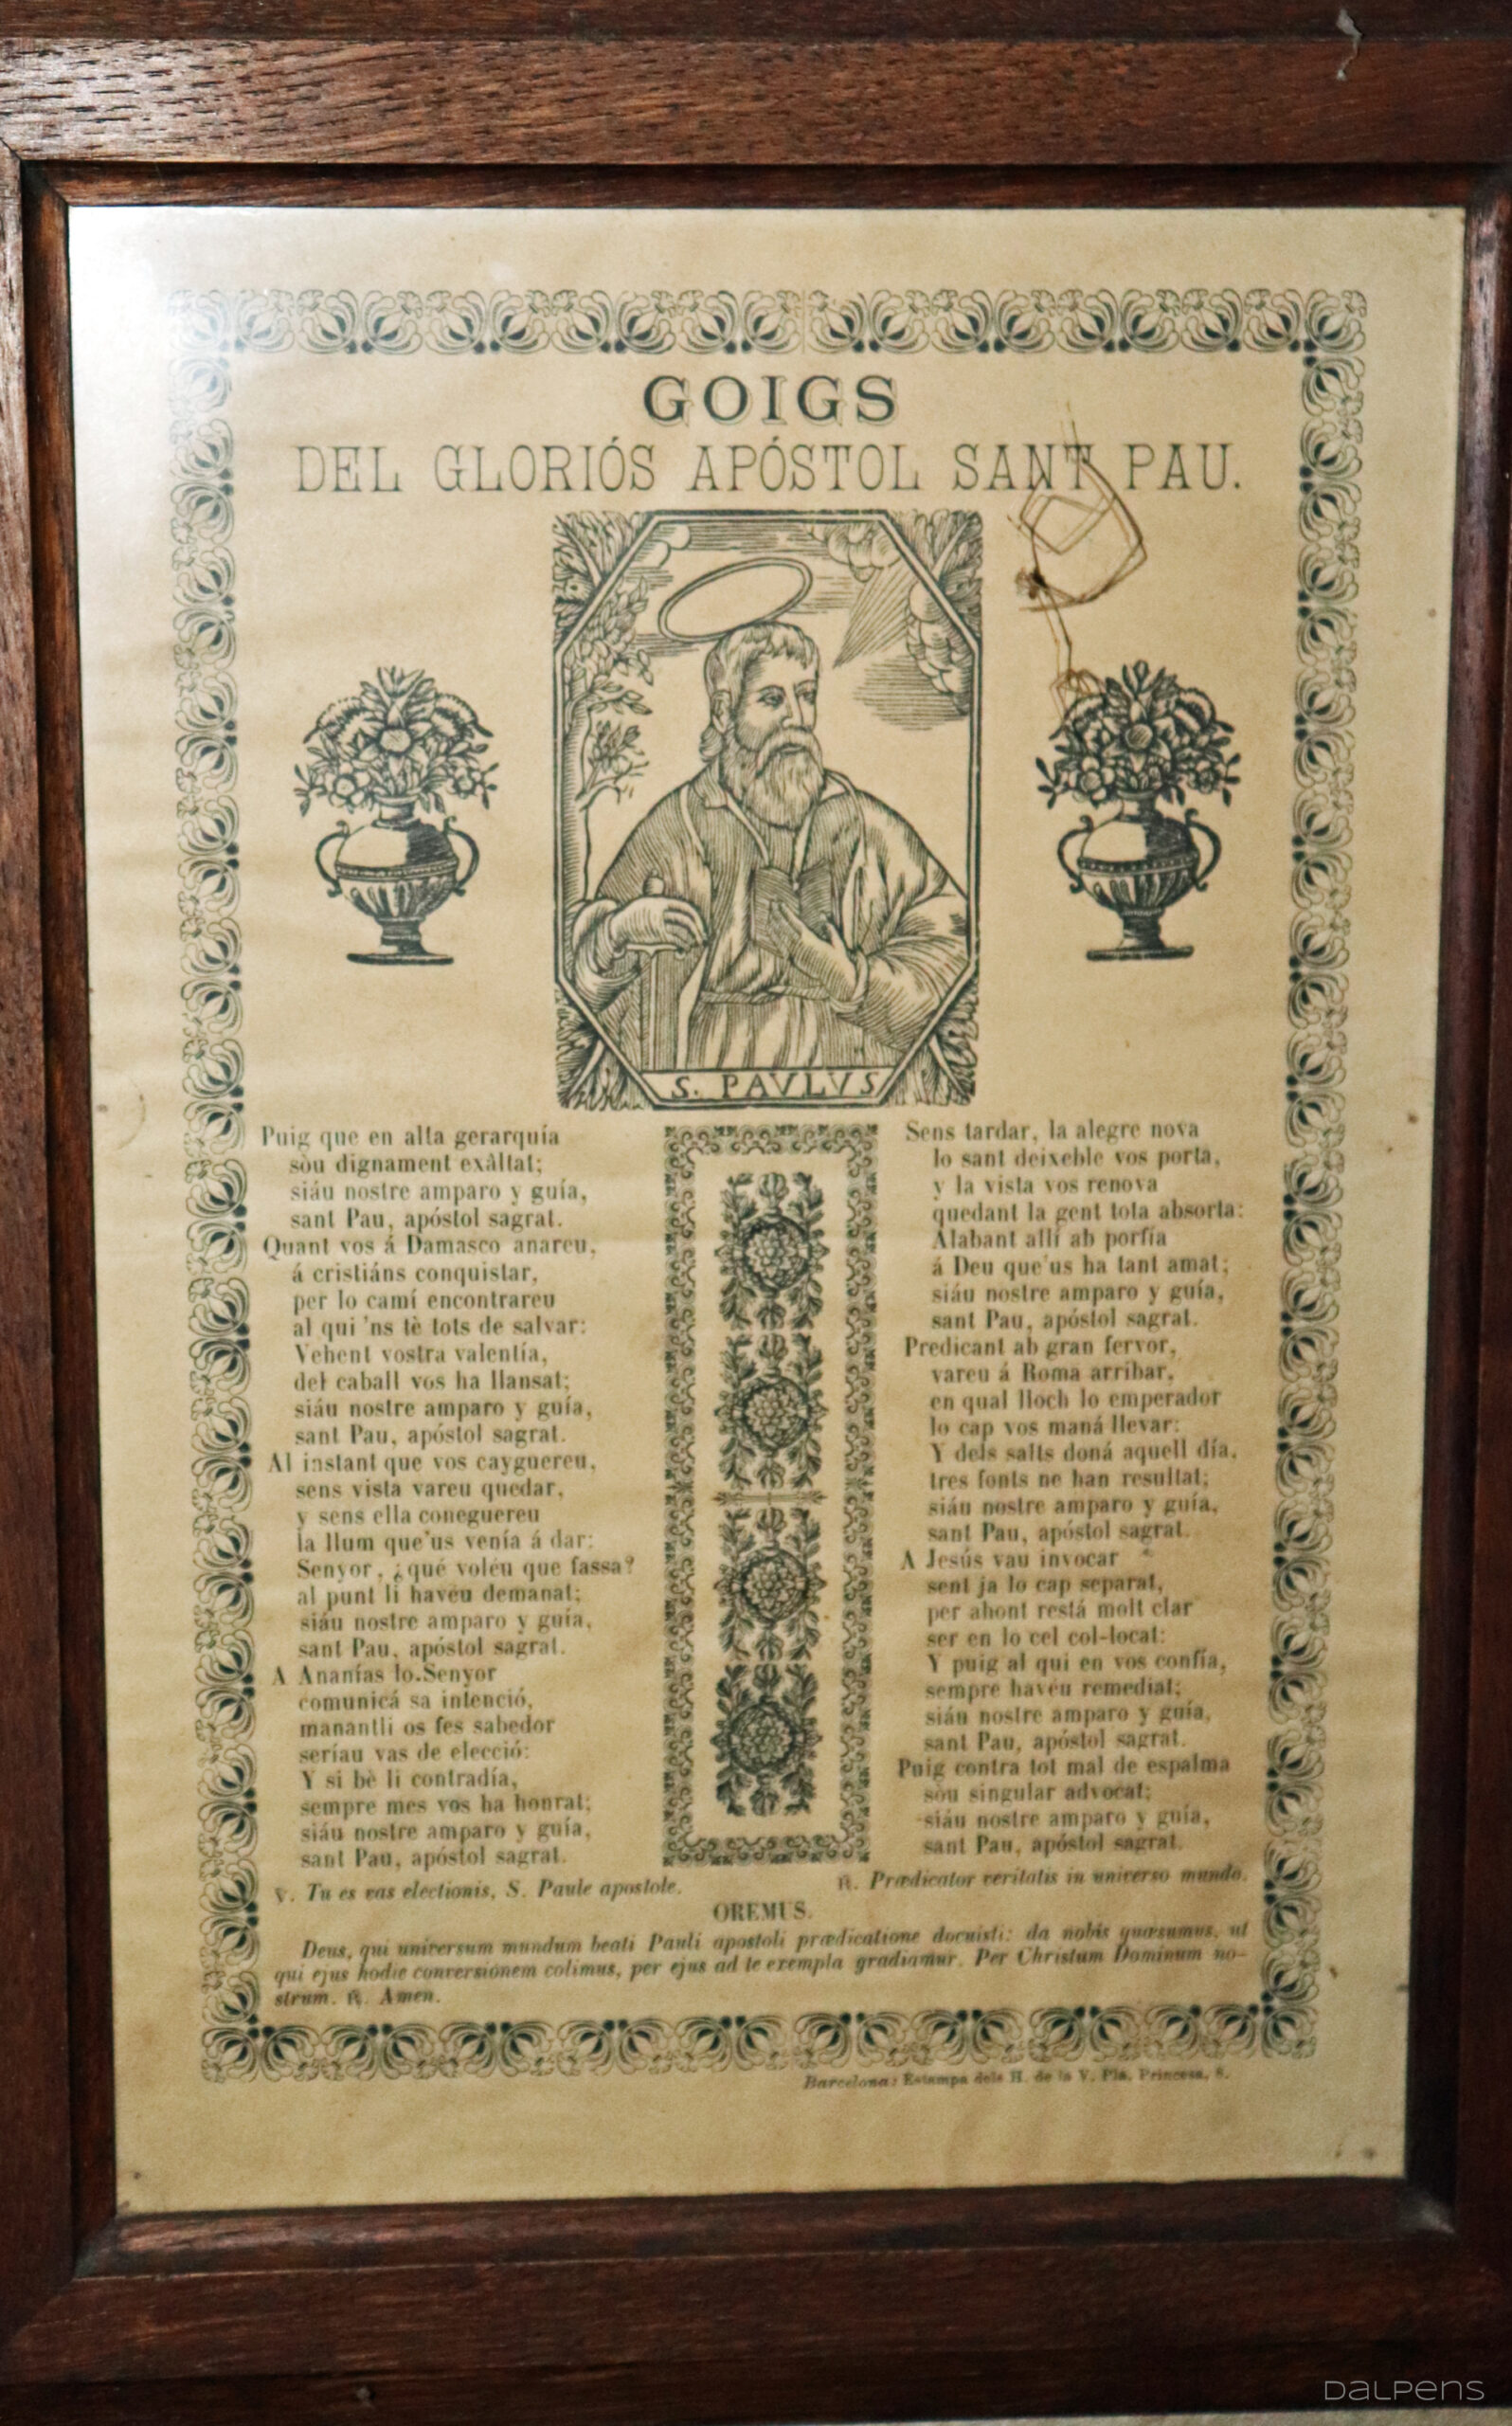 GOIGS
DEL GLORIÓS APÓSTOL SANT PAU.
S. PAVLVS
Puig que en alta gerarquía
sòu dignament exàltat;
siáu nostre amparo y guía,
sant Pau, apóstol sagrat.
Quant vos á Damasco anareu,
á cristiáns conquistar,
per lo camí encontrareu
al qui 'ns tè tots de salvar:
Vehent vostra valentía,
del caball vos ha llansat;
siáu nostre amparo y guía,
sant Pau, apóstol sagrat.
Al instant que vos cayguereu,
sens vista vareu quedar,
y sens ella coneguereu
la llum que'us venía á dar:
Senyor, ¿qué voléu que fassa?
al punt li havéu demanat;
siáu nostre amparo y guía,
sant Pau, apóstol sagrat.
A Ananías lo Senyor
comunicá sa intenció,
manantli os fes sabedor
seríau vas de elecció:
Y si bè li contradía,
sempre mes vos ha honrat;
siáu nostre amparo y guía,
sant Pau, apóstol sagrat.
Sens tardar, la alegre nova
lo sant deixeble vos porta,
y la vista vos renova
quedant la gent tota absorta:
Alabant allí ab porfía
á Deu que'us ha tant amat;
siáu nostre amparo y guía,
sant Pau, apóstol sagrat.
Predicant ab gran fervor,
vareu á Roma arribar,
en qual lloch lo emperador
lo cap vos maná llevar:
Y dels salts doná aquell día,
tres fonts ne han resultat;
siáu nostre amparo y guía,
sant Pau, apóstol sagrat.
A Jesús vau invocar
sent ja lo cap separat,
per ahont restá molt clar
ser en lo cel col-locat:
Y puig al qui en vos confía,
sempre havéu remediat;
siáu nostre amparo y guía,
sant Pau, apóstol sagrat.
Puig contra tot mal de espalma
sòu singular advocat;
siáu nostre amparo y guía,
sant Pau, apóstol sagrat.
℣. Tu es vas electionis, S. Paule apostole.
℟. Prædicator veritatis in universo mundo.
OREMUS.
Deus, qui universum mundum beati Pauli apostoli prædicatione docuisti: da nobis quæsumus, ut
qui ejus hodie conversionem colimus, per ejus ad te exempla gradiamur. Per Christum Dominum no-
strum. ℟. Amen.
Barcelona: Estampa dels H. de la V. Pla, Princesa, 8.
DALPENS